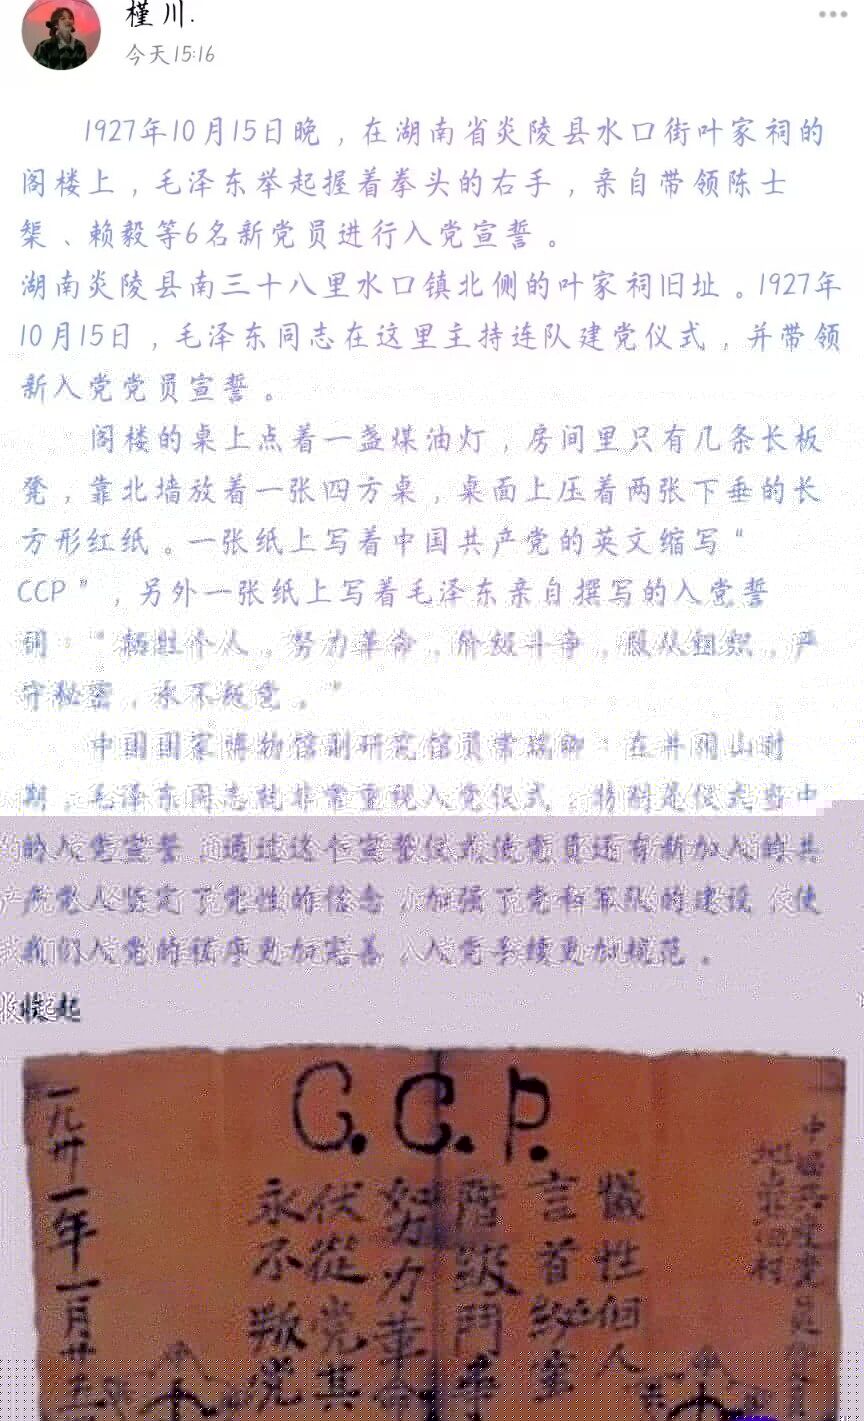 槿川.
今天15:16
1927年10月15日晚，在湖南省炎陵县水口街叶家祠的
阁楼上，毛泽东举起握着拳头的右手，亲自带领陈士
榘、赖毅等6名新党员进行入党宣誓。
湖南炎陵县南三十八里水口镇北侧的叶家祠旧址。1927年
10月15日，毛泽东同志在这里主持连队建党仪式，并带领
新入党党员宣誓。
阁楼的桌上点着一盏煤油灯，房间里只有几条长板
凳，靠北墙放着一张四方桌，桌面上压着两张下垂的长
方形红纸。一张纸上写着中国共产党的英文缩写“
CCP”，另外一张纸上写着毛泽东亲自撰写的入党誓
词：“牺牲个人，努力革命，阶级斗争，服从组织，严
守秘密，永不叛党。”
中国国家博物馆副研究馆员 在井冈山时
期，毛泽东同志就非常重视入党仪式，特别是仪式当中
的入党宣誓，通过这个宣誓仪式使党员还有新加入的共
产党人坚定了党性的信念，加强了党和军队的建设，使
我们入党的程序更加完善，入党手续更加规范。
收起
C.C.P.
中國共產黨黨員
犧牲個人
言首秘密
階級鬥爭
努力革命
伏從党其
永不叛党
一九廿一年一月廿五